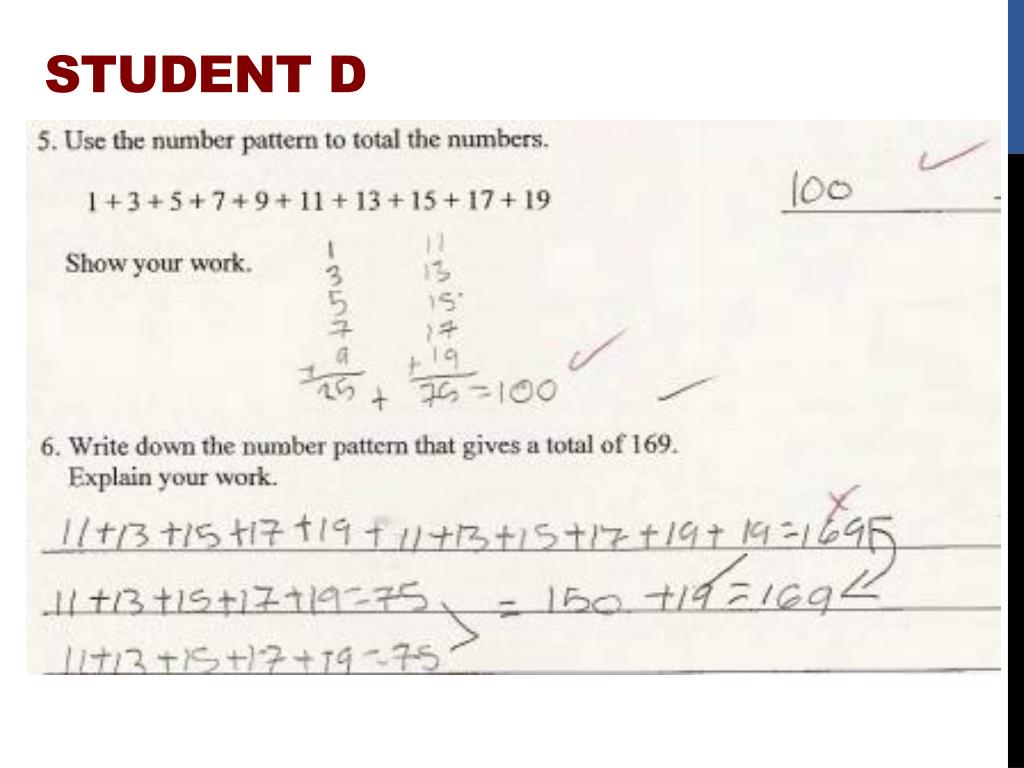 STUDENT D
5. Use the number pattern to total the numbers.
1 + 3 + 5 + 7 + 9 + 11 + 13 + 15 + 17 + 19
100
Show your work.
1 11
3 13
5 15
7 17
+ 9 + 19
25 + 75 = 100
6. Write down the number pattern that gives a total of 169.
Explain your work.
11+13+15+17+19+11+13+15+17+19+19=169
11+13+15+17+19=75 = 150 +19=169
11+13+15+17+19=75